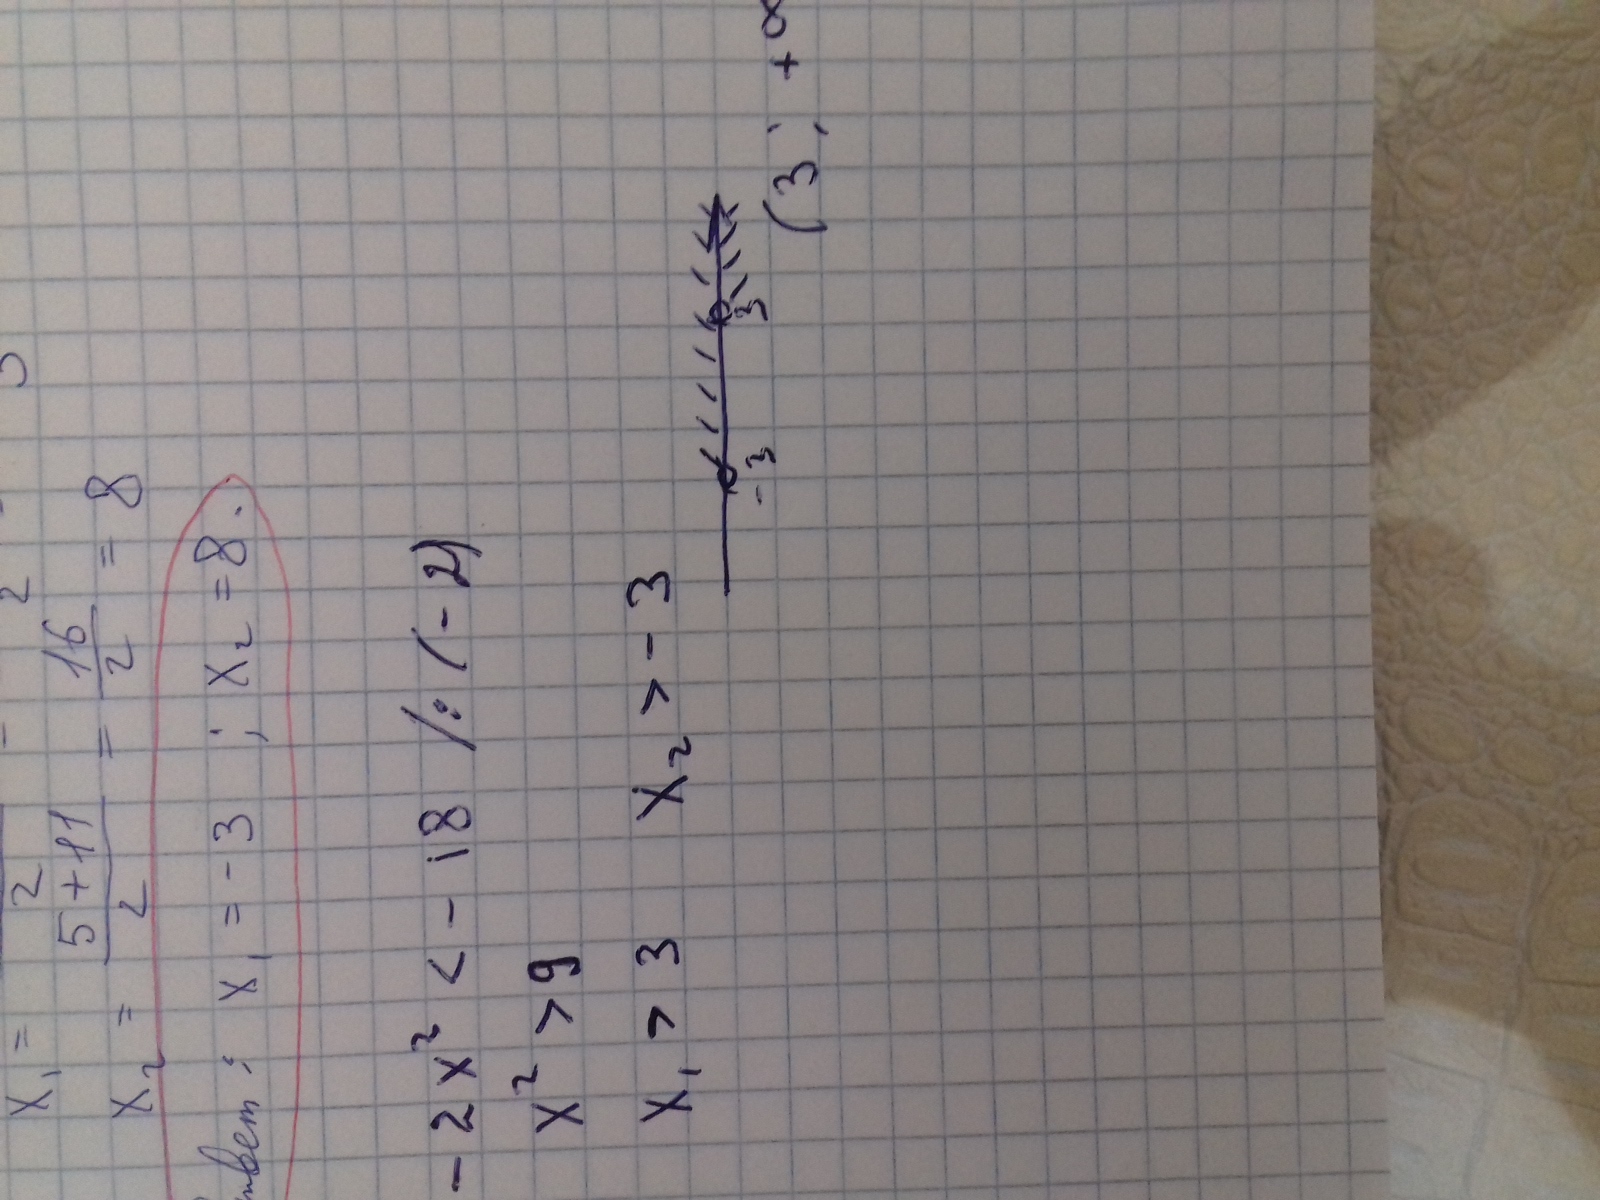 x₁ = 2
x₂ = 5+11/2 = 16/2 = 8
x₁ = -3 ; x₂ = 8.
-2x² < -18 /:(-2)
x² > 9
x₁ > 3 x₂ > -3
-3 3
(3; +∞